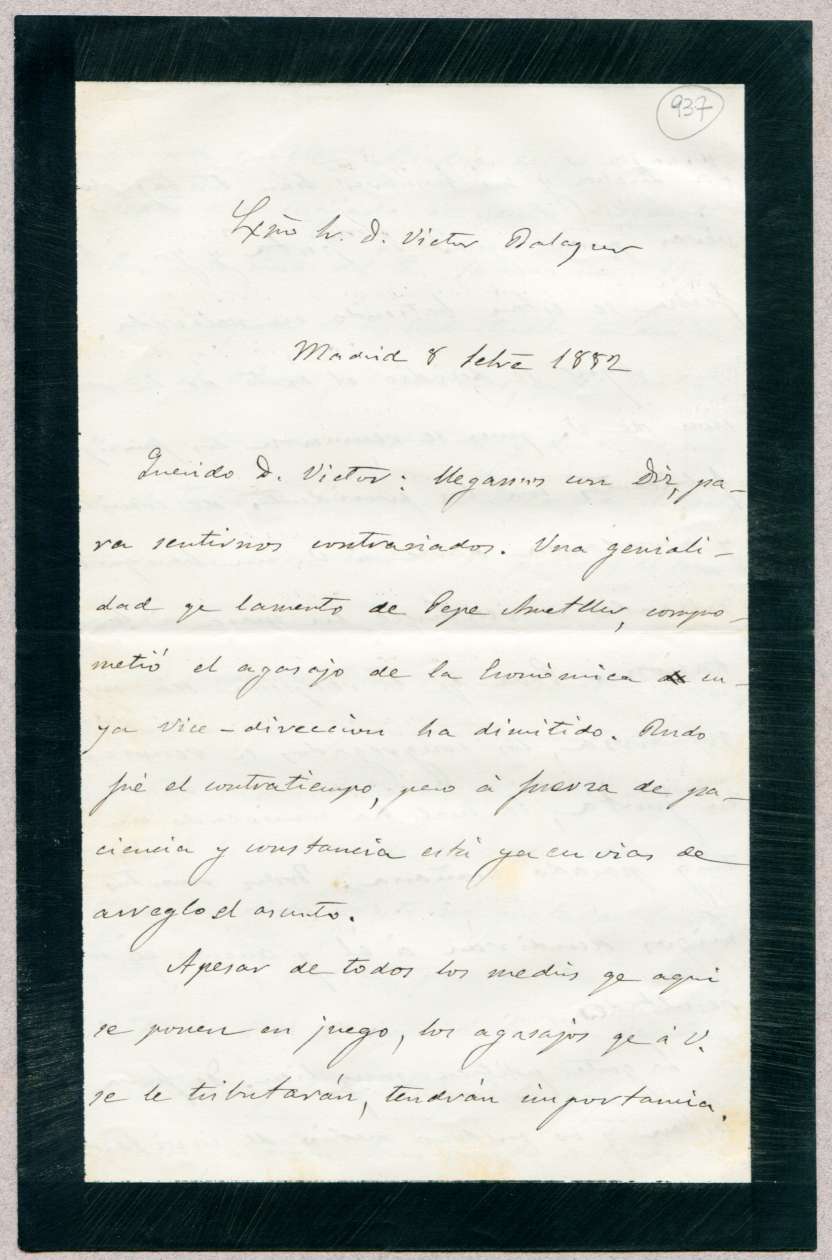 937
Exmo Sr. D. Victor Balaguer
Madrid 8 Setre 1882
Querido D. Victor: llegamos con Diz, pa-
ra sentirnos contrariados. Una geniali-
dad qe lamento de Pepe Ametller, compro-
metió el agasajo de la Económica cu-
ya Vice-direccion ha dimitido. Rudo
fué el contratiempo, pero á fuerza de pa-
ciencia y constancia está ya en vias de
arreglo el asunto.
Apesar de todos los medios qe aqui
se ponen en juego, los agasajos qe á V.
se le tributarán, tendrán importancia.